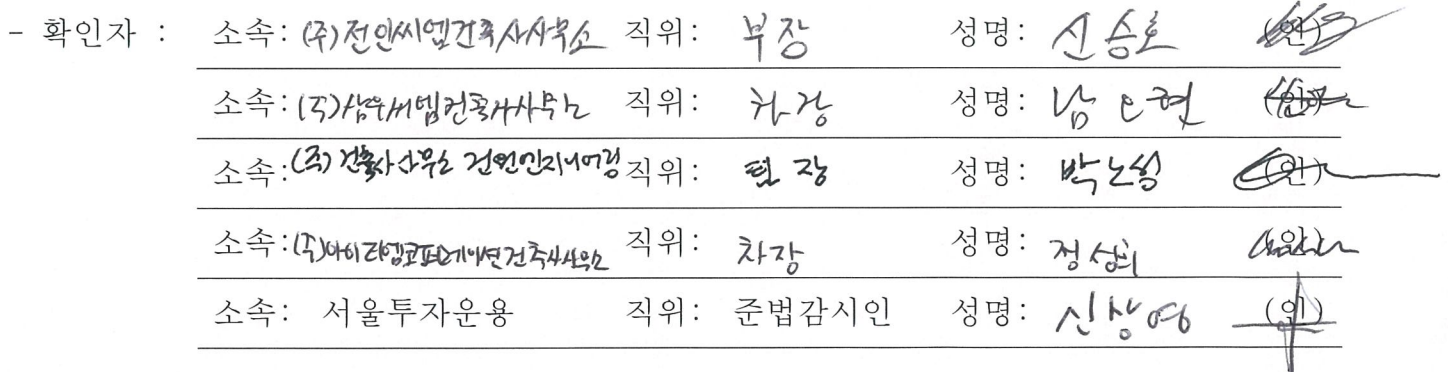 - 확인자 : 소속: (주)전인씨엠건축사사무소 직위: 부장 성명: 신승호 (인)
소속: (주)삼우씨엠건축사사무소 직위: 차장 성명: 남 현 (인)
소속: (주)건축사사무소 건원엔지니어링 직위: 팀장 성명: 박노성 (인)
소속: (주)아이티엠코퍼레이션건축사사무소 직위: 차장 성명: 정성희 (인)
소속: 서울투자운용 직위: 준법감시인 성명: 신상영 (인)